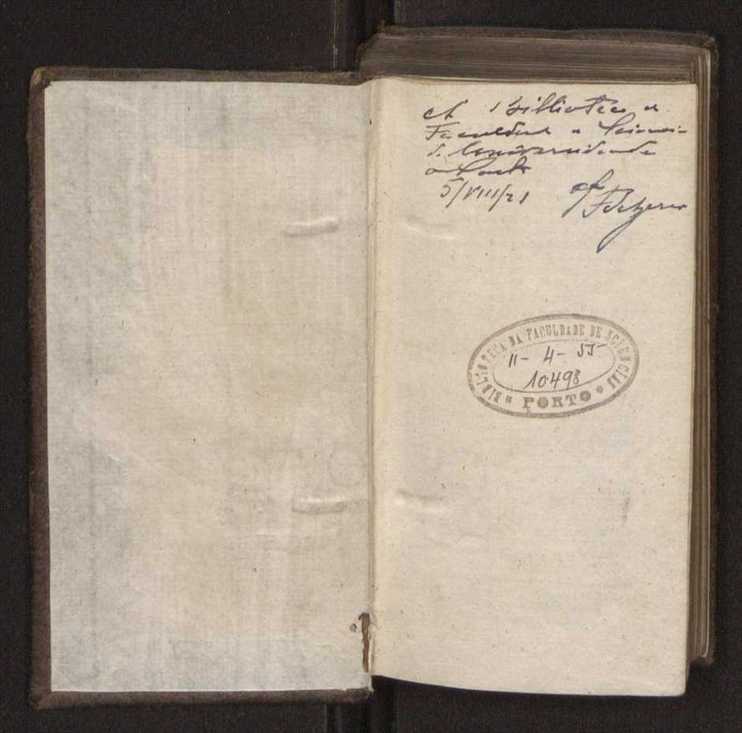 A Bibliotheca da
Faculdade de Sciencias
da Universidade
do Porto
5/VIII/21
BIBLIOTECA DA FACULDADE DE SCIENCIAS
11-4-55
10498
* PORTO *